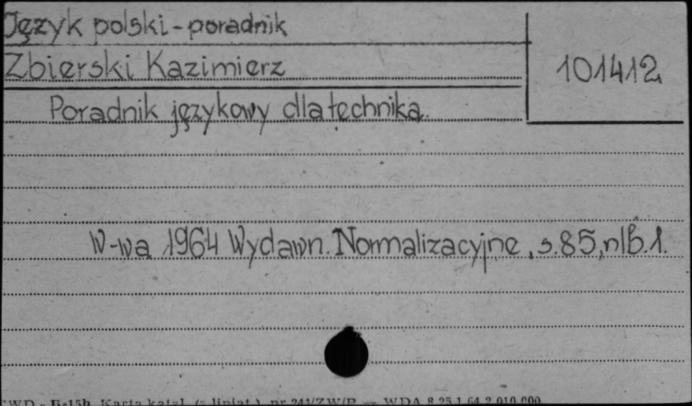 Język polski-poradnik
Zbierski Kazimierz
101412
Poradnik językowy dla technika.
W-wa 1964 Wydawn. Normalizacyjne, s.85, nlb.1.
Karta katal. nr 241/ZW/P — WDA